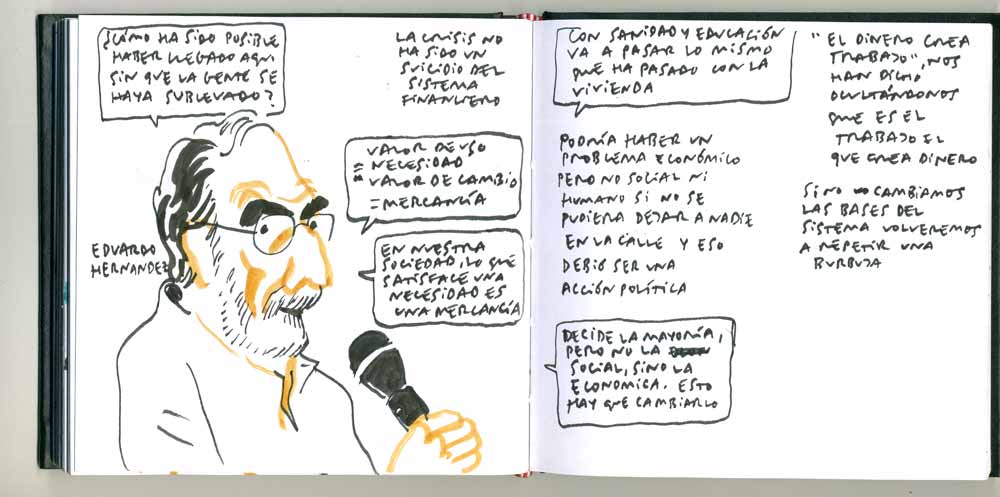 ¿CÓMO HA SIDO POSIBLE
HABER LLEGADO AQUI
SIN QUE LA GENTE SE
HAYA SUBLEVADO?
LA CRISIS NO
HA SIDO UN
SUICIDIO DEL
SISTEMA
FINANCIERO
VALOR DE USO
= NECESIDAD
VALOR DE CAMBIO
= MERCANCÍA
EDUARDO
HERNANDEZ
EN NUESTRA
SOCIEDAD, LO QUE
SATISFACE UNA
NECESIDAD ES
UNA MERCANCÍA
CON SANIDAD Y EDUCACIÓN
VA A PASAR LO MISMO
QUE HA PASADO CON LA
VIVIENDA
PODRÍA HABER UN
PROBLEMA ECONÓMICO
PERO NO SOCIAL NI
HUMANO SI NO SE
PUDIERA DEJAR A NADIE
EN LA CALLE Y ESO
DEBIÓ SER UNA
ACCIÓN POLÍTICA
DECIDE LA MAYORÍA,
PERO NO LA
SOCIAL, SINO LA
ECONOMICA. ESTO
HAY QUE CAMBIARLO
"EL DINERO CREA
TRABAJO", NOS
HAN DICHO
OCULTÁNDONOS
QUE ES EL
TRABAJO EL
QUE CREA DINERO
SI NO CAMBIAMOS
LAS BASES DEL
SISTEMA VOLVEREMOS
A REPETIR UNA
BURBUJA